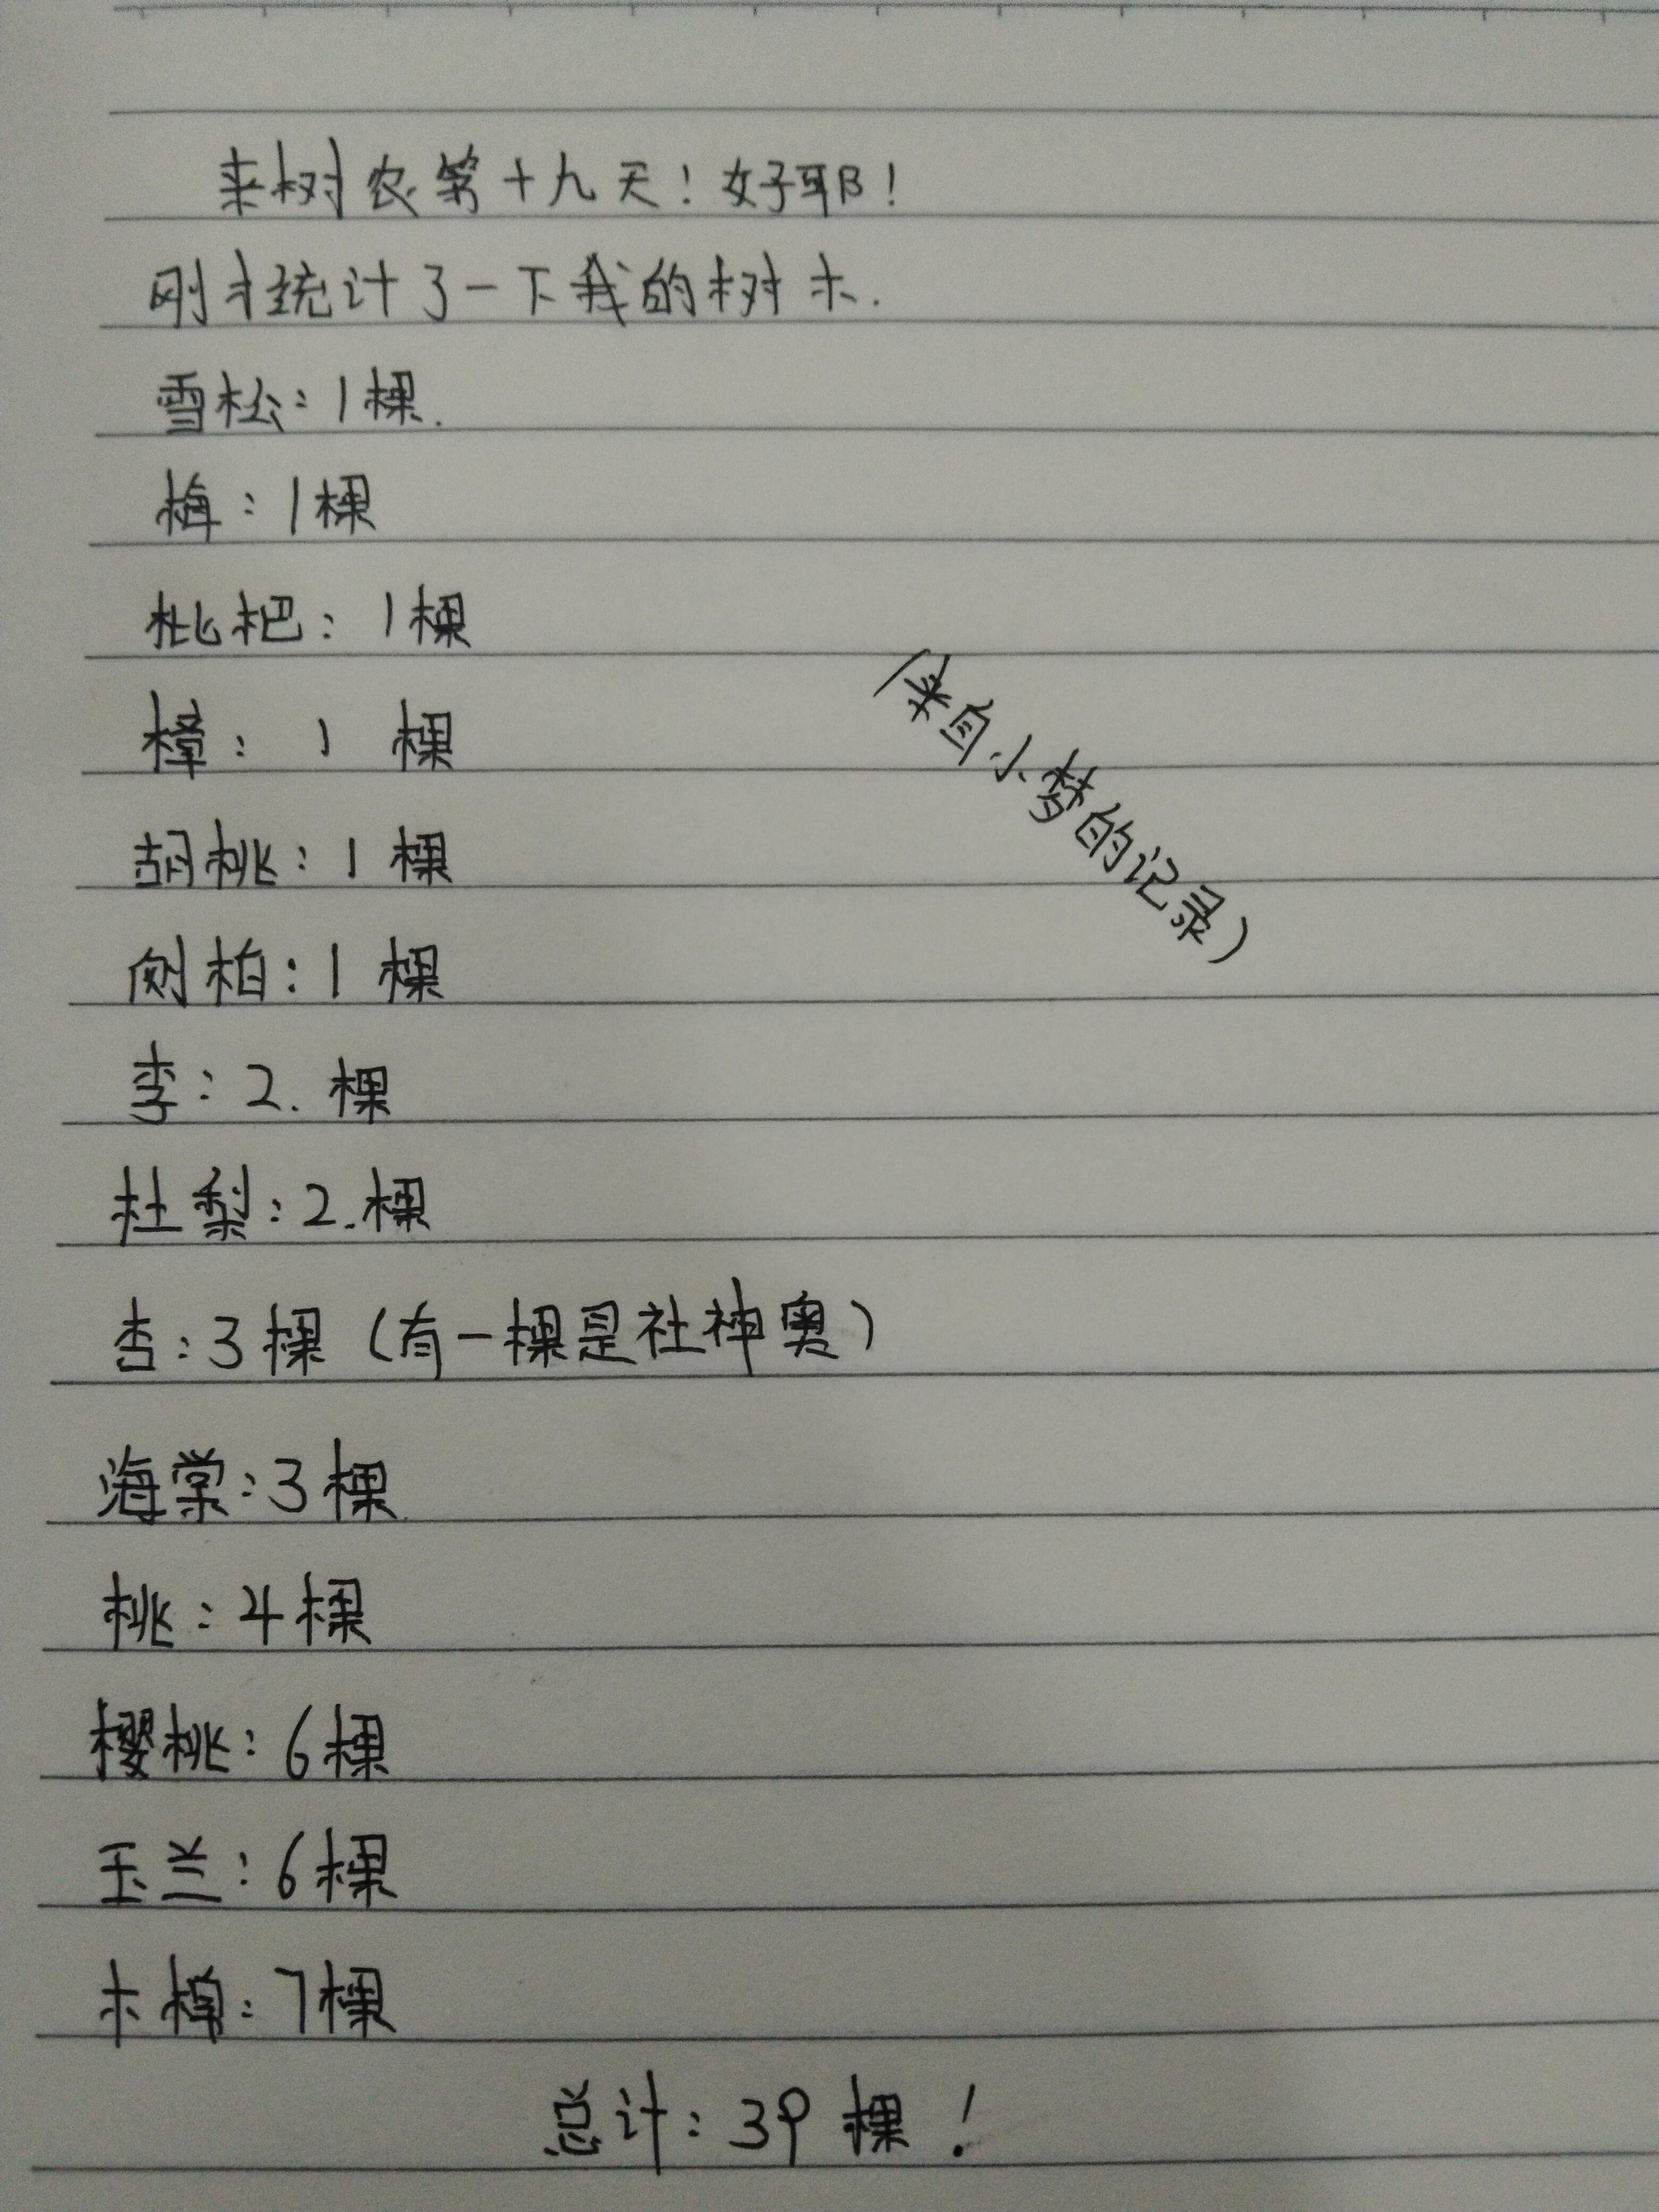 来树农第十九天！好耶！
刚才统计了一下我的树木.
雪松：1棵.
梅：1棵
枇杷：1棵
樟：1棵
胡桃：1棵
侧柏：1棵
李：2.棵
杜梨：2.棵
杏：3棵（有一棵是社神奥）
海棠：3棵.
桃：4棵
樱桃：6棵
玉兰：6棵
木梅：7棵
总计：39棵！
（来自小梦的记录）